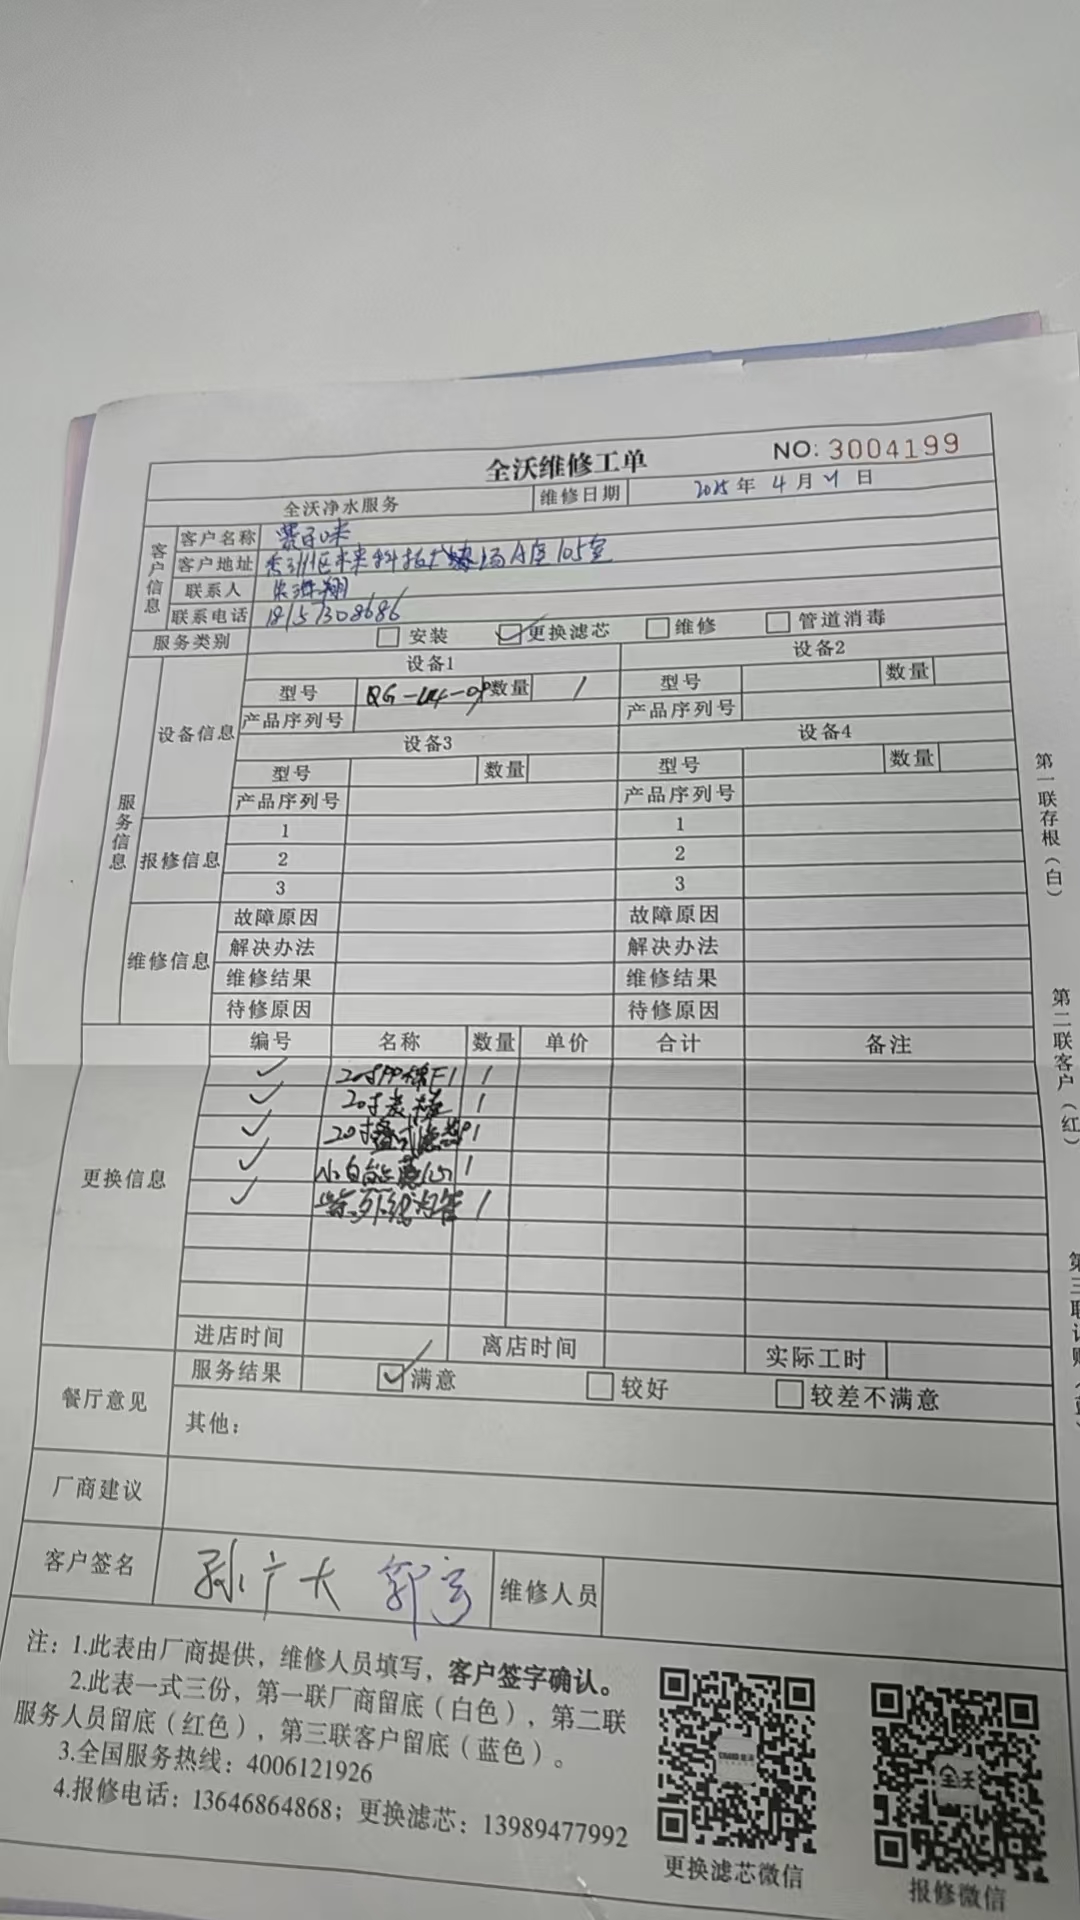 全沃维修工单 NO: 3004199
全沃净水服务 维修日期 2025年4月21日
客户信息
客户名称
客户地址 秀州区未来科技广场A座105室
联系人
联系电话 18157308686
服务类别 安装 更换滤芯 维修 管道消毒
服务信息
设备信息
设备1 设备2
型号 数量 1 型号 数量
产品序列号 产品序列号
设备3 设备4
型号 数量 型号 数量
产品序列号 产品序列号
报修信息
1 1
2 2
3 3
维修信息
故障原因 故障原因
解决办法 解决办法
维修结果 维修结果
待修原因 待修原因
更换信息
编号 名称 数量 单价 合计 备注
✓ 20寸PP棉F1 1
✓ 20寸炭棒 1
✓ 20寸盘式滤芯 1
✓ 1
✓ 紫外线灯管 1
进店时间 离店时间 实际工时
餐厅意见
服务结果 满意 较好 较差不满意
其他：
厂商建议
客户签名 孙广大 郭彦 维修人员
注：1.此表由厂商提供，维修人员填写，客户签字确认。
2.此表一式三份，第一联厂商留底（白色），第二联
服务人员留底（红色），第三联客户留底（蓝色）。
3.全国服务热线：4006121926
4.报修电话：13646864868；更换滤芯：13989477992
更换滤芯微信
全沃
报修微信
第一联存根（白）
第二联客户（红）
第三联